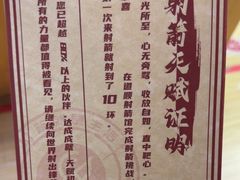 射箭天赋证明
光所至，心无旁骛，收放自如，直中靶心。
喜 在道顺射箭馆完成射箭挑战
第一次来射箭就射到了10环、
您已超越 以上的伙伴，达成成就：天赋
所有的力量都值得被看见，请继续向世界射出锋